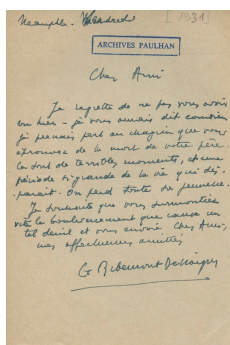 Neauphle - Vendredi
[1931]
ARCHIVES PAULHAN
Cher Ami
Je regrette de ne pas vous avoir
vu hier - je vous aurais dit combien
je prenais part au chagrin que vous
éprouvez de la mort de votre père.
Ce sont de terribles moments, et une
période si grande de la vie qui dis-
paraît. On perd toute sa jeunesse.
Je souhaite que vous surmontiez
vite le bouleversement que cause un
tel deuil et vous envoie, cher Ami,
mes affectueuses amitiés
G Ribemont Dessaignes